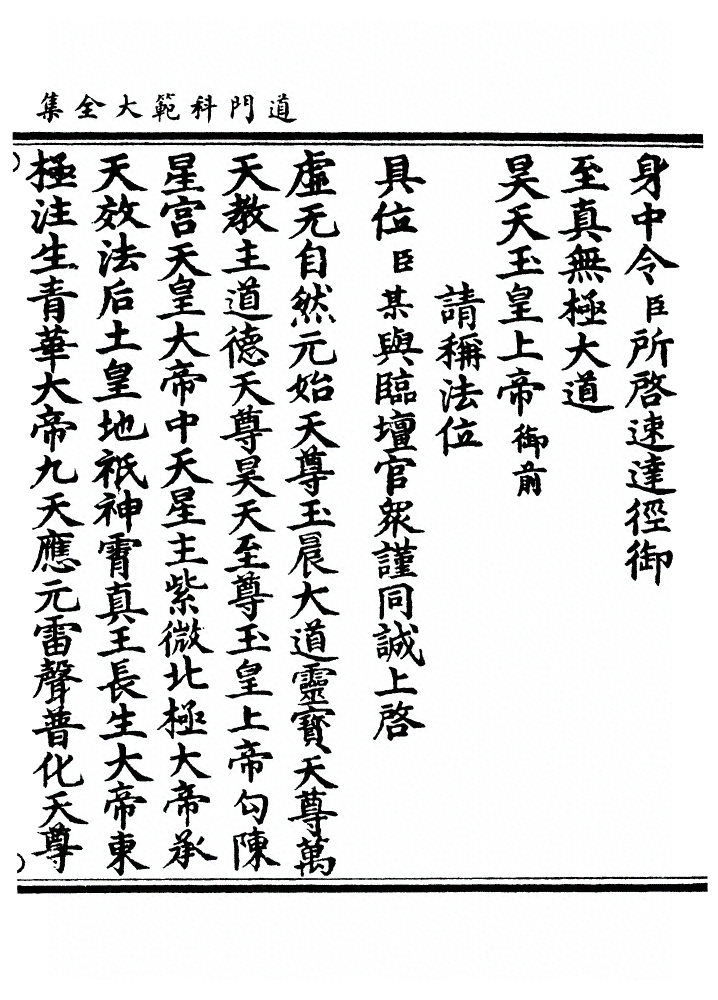 道門科範大全集
身中令臣所啓速達徑御
至真無極大道
昊天玉皇上帝御前
請稱法位
具位臣某與臨壇官衆謹同誠上啓
虛无自然元始天尊玉晨大道靈寶天尊萬
天教主道德天尊昊天至尊玉皇上帝勾陳
星宫天皇大帝中天星主紫微北極大帝承
天效法后土皇地祇神霄真王長生大帝東
極注生青華大帝九天應元雷聲普化天尊